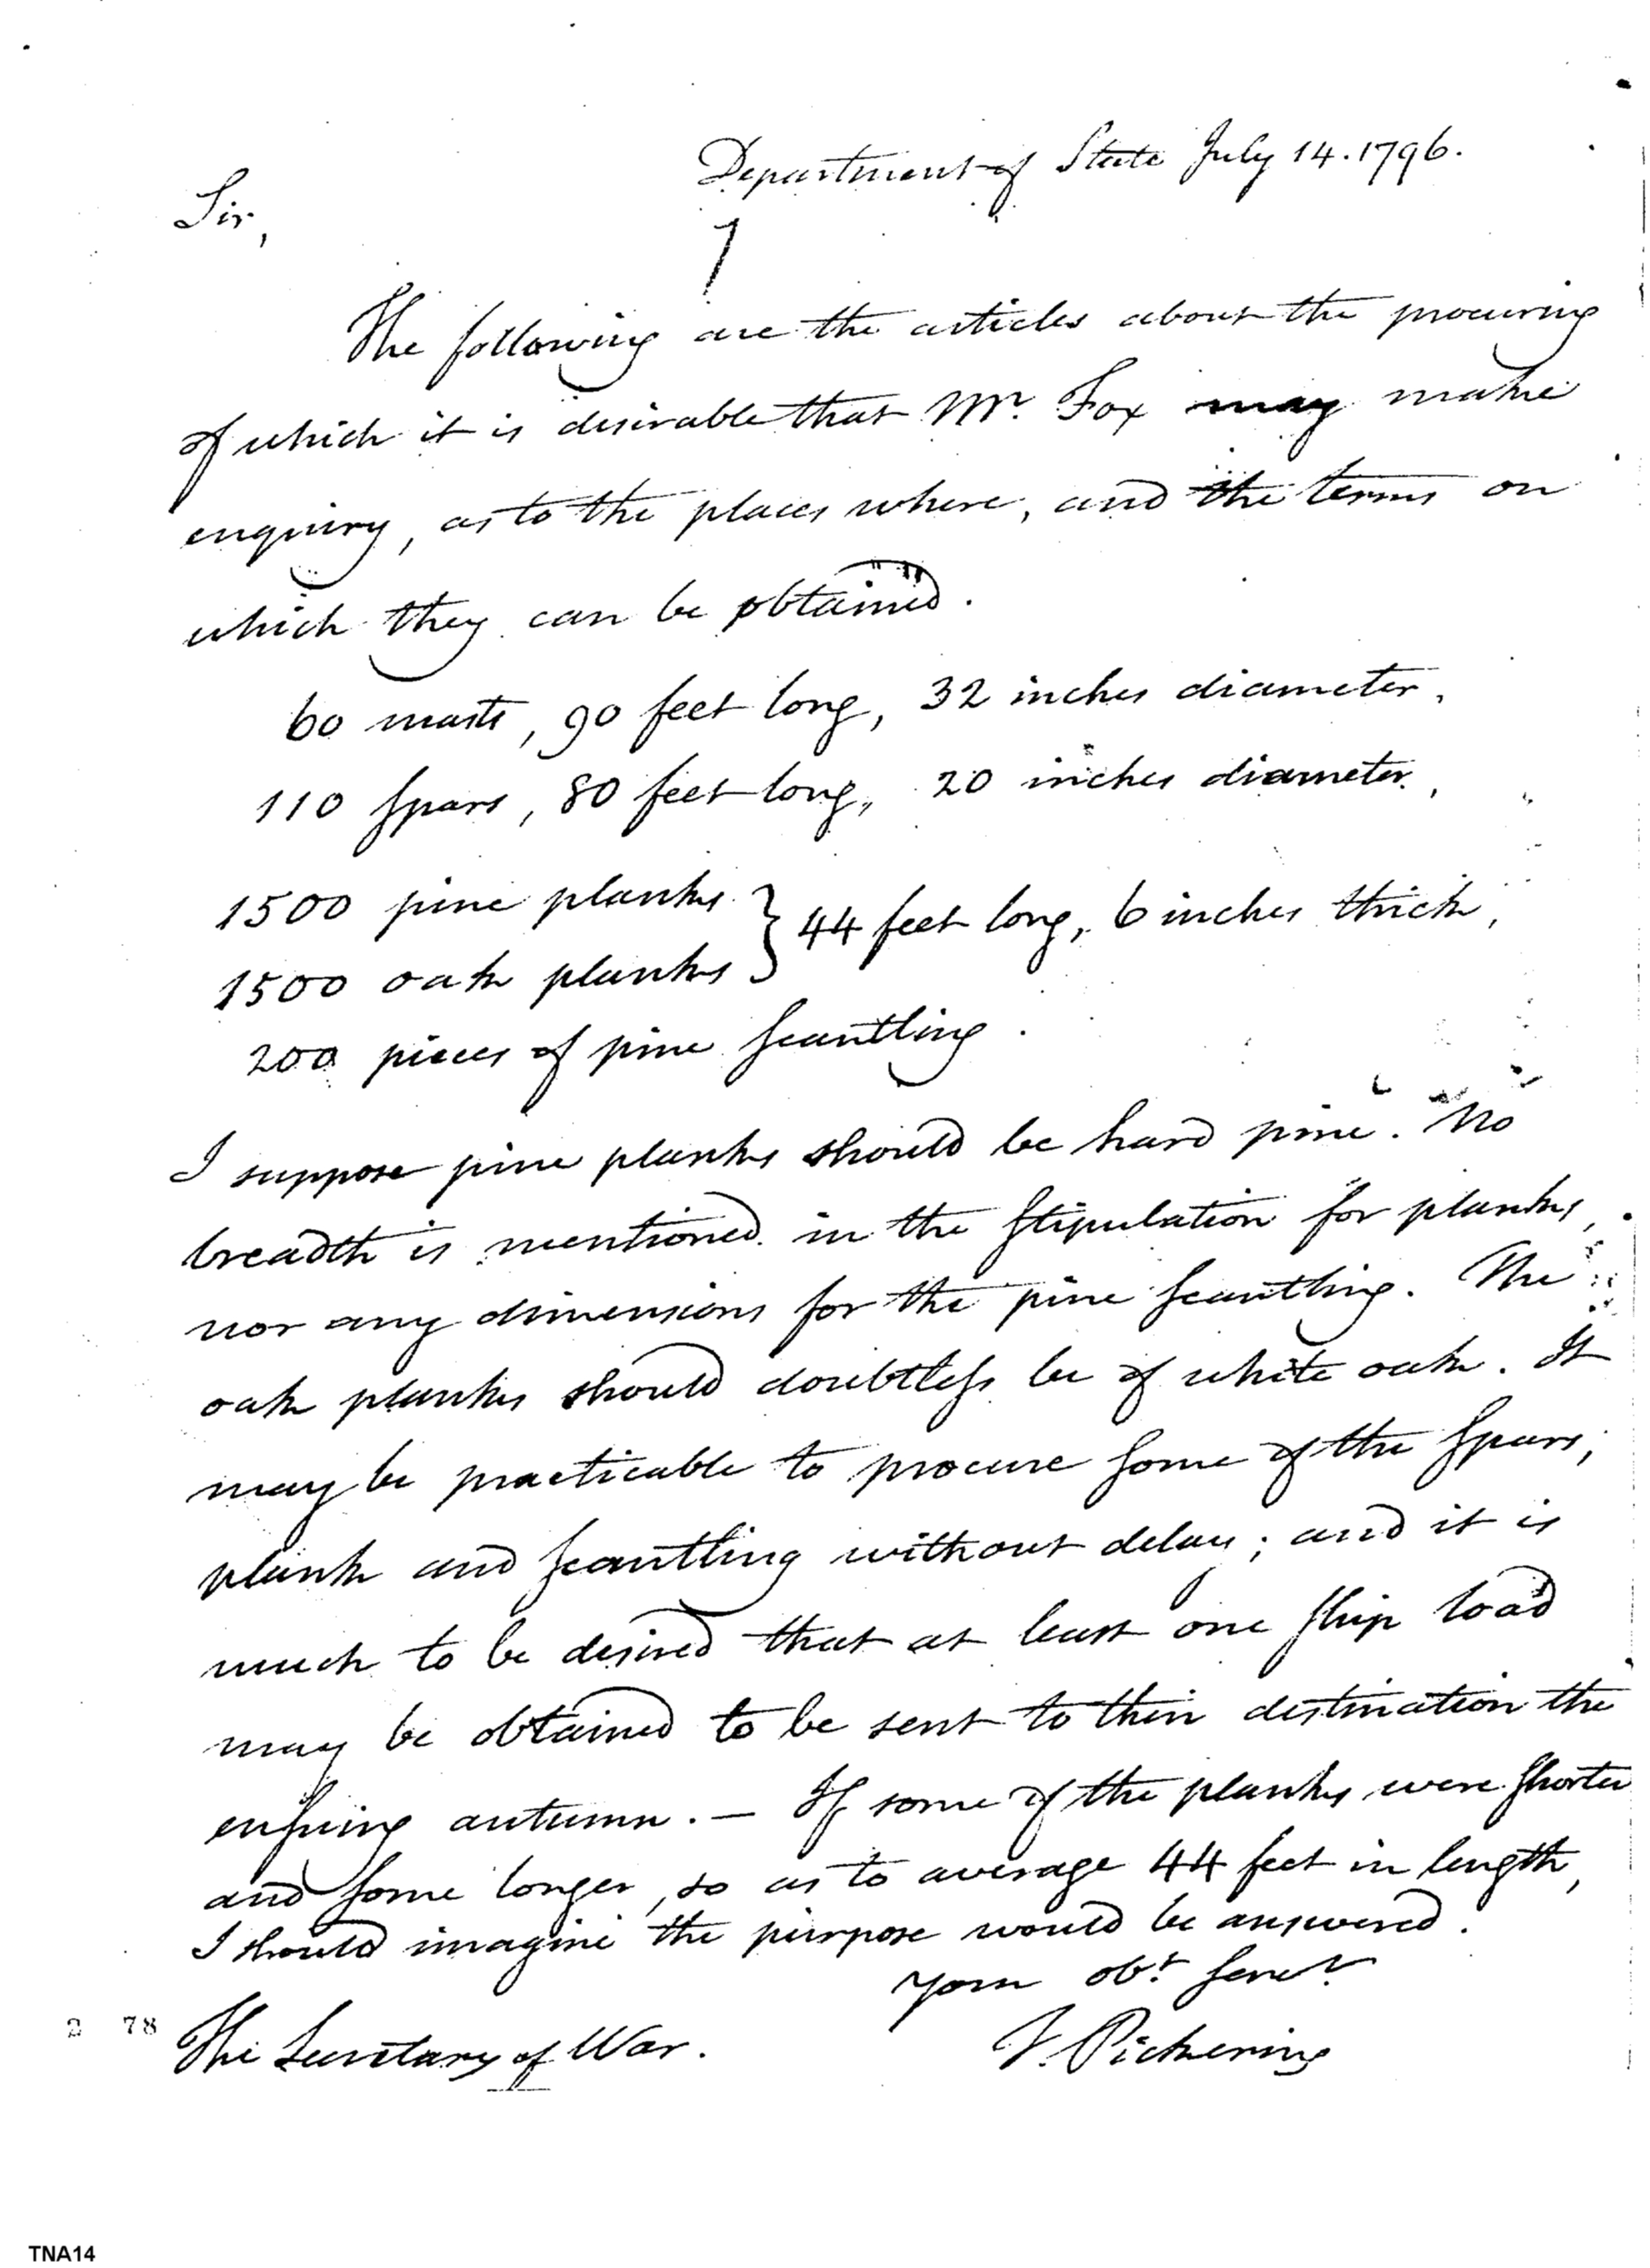 Department of State July 14. 1796.
Sir,
The following are the articles about the procuring
of which it is desirable that Mr. Fox may make
enquiry, as to the places where, and the terms on
which they can be obtained.
60 masts, 90 feet long, 32 inches diameter,
110 spars, 80 feet long, 20 inches diameter,
1500 pine planks } 44 feet long, 6 inches thick,
1500 oak planks
200 pieces of pine scantling.
I suppose pine planks should be hard pine. No
breadth is mentioned in the stipulation for planks,
nor any dimensions for the pine scantling. The
oak planks should doubtless be of white oak. It
may be practicable to procure some of the spars,
plank and scantling without delay; and it is
much to be desired that at least one ship load
may be obtained to be sent to their destination the
ensuing autumn. — If some of the planks were shorter
and some longer, so as to average 44 feet in length,
I should imagine the purpose would be answered.
Your obt. servt.
The Secretary of War. T. Pickering
2 78
TNA14